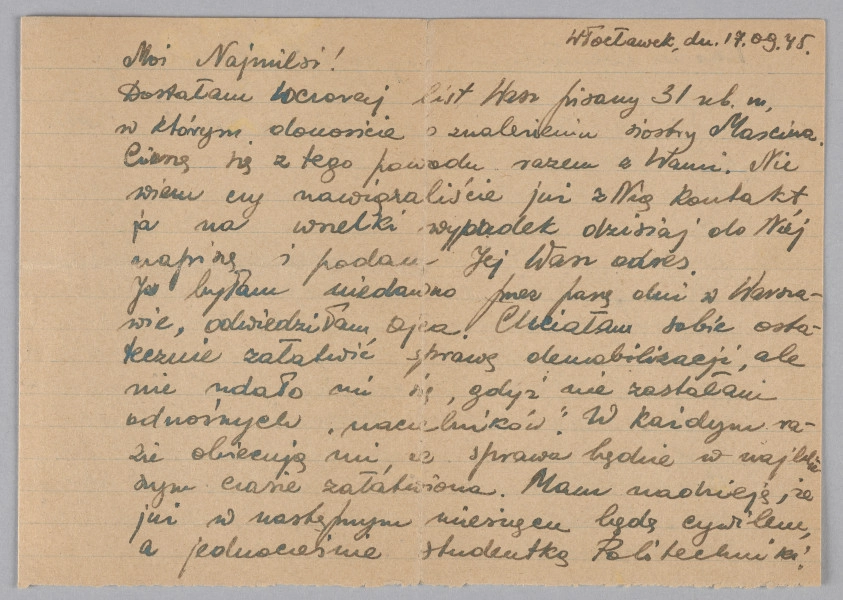 Włocławek, dn. 17.09.45.
Moi Najmilsi!
Dostałam wczoraj list Wasz pisany 31 ub. m,
w którym donosicie o znalezieniu siostry Marcina.
Cieszę się z tego powodu razem z Wami. Nie
wiem czy nawiązaliście już z Nią kontakt,
ja na wszelki wypadek dzisiaj do Niej
napiszę i podam Jej Wasz adres.
Ja byłam niedawno przez parę dni w Warsza-
wie, odwiedziłam Ojca. Chciałam sobie osta-
tecznie załatwić sprawę demobilizacji, ale
nie udało mi się, gdyż nie zastałam
odnośnych "naczelników". W każdym ra-
zie obiecują mi, że sprawa będzie w najbliż-
szym czasie załatwiona. Mam nadzieję, że
już w następnym miesiącu będę cywilem,
a jednocześnie studentką Politechniki!